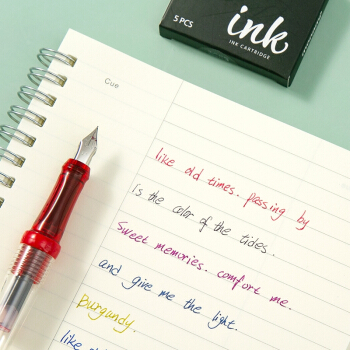 5 PCS
ink
INK CARTRIDGE
Cue
like old times. passing by
Is the color of the tides.
Sweet memories. comfort me.
and give me the light.
Burgundy.
like old